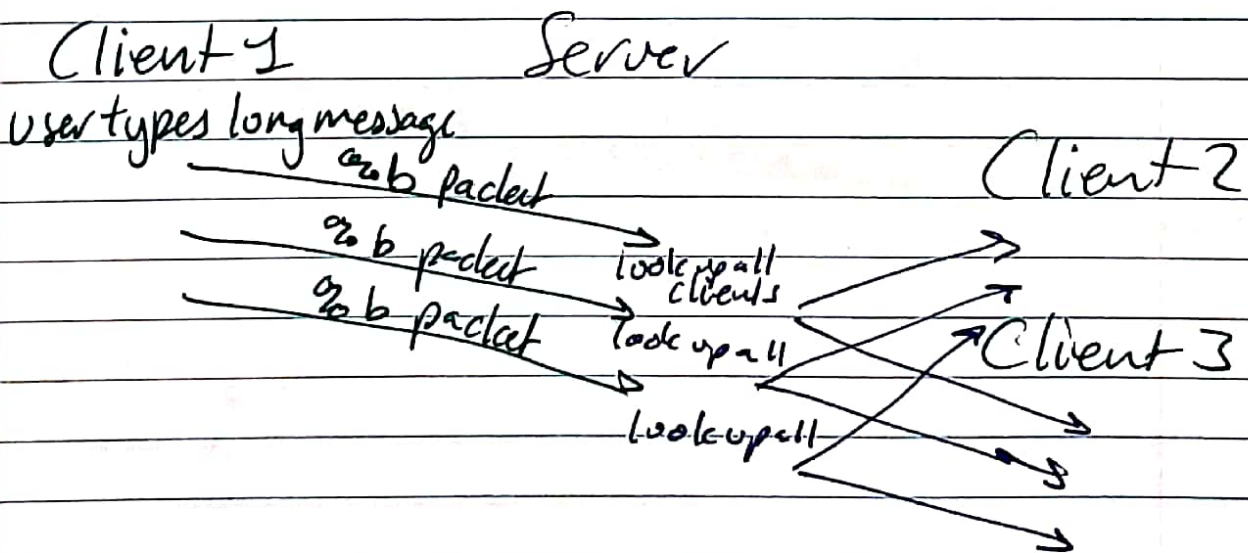 Client 1
Server
user types long message
%b packet
Client 2
%b packet
lookup all
clients
%b packet
lookup all
Client 3
lookup all